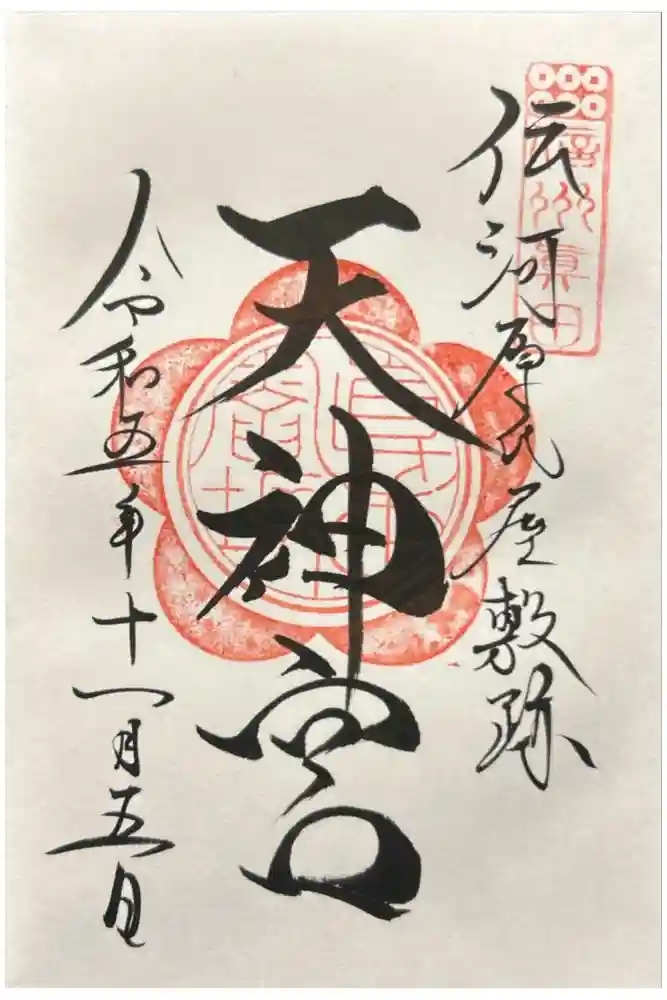 信州眞田
伝河原氏屋敷跡
天神宮
令和五年十一月五日